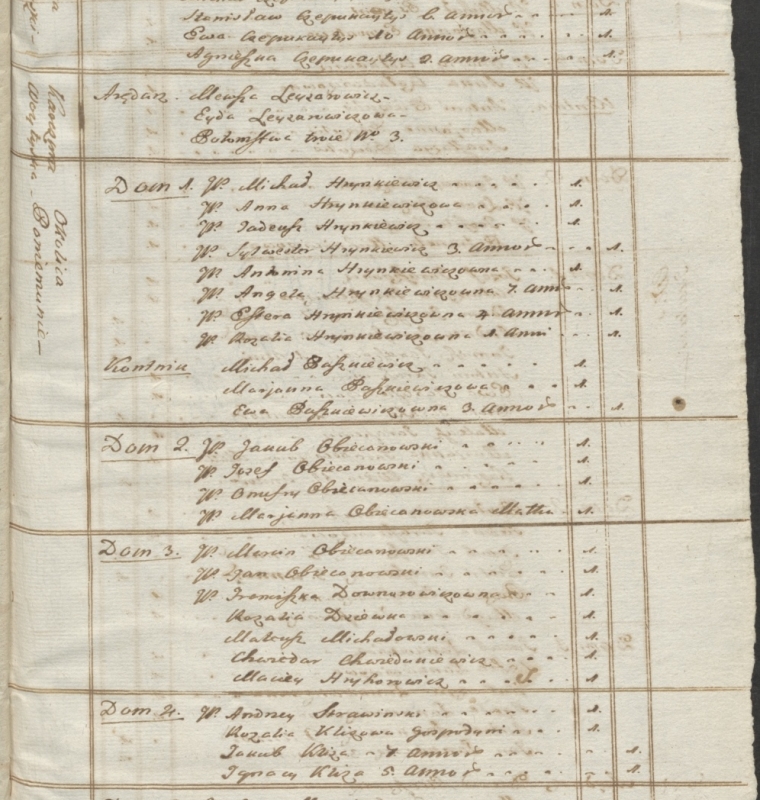 Stanisław Czepukaytys 6. Annor 1.
Ewa Czepukaytys 10 Annor 1.
Agnieszka Czepukaytys 2. Annor 1.
Arędarz Mewsza Leyzerowicz
Eyda Leyzerowiczowa
Potomstwa troie No 3.
Karczma Okolica
Poniemunie
Dom 1. W. Michał Hrynkiewicz 1.
W. Anna Hrynkiewiczowa 1.
W. Tadeusz Hrynkiewicz 1.
W. Sylwester Hrynkiewicz 3. Annor 1.
W. Antonina Hrynkiewiczowna 1.
W. Angela Hrynkiewiczowna 7. Ann 1.
W. Estera Hrynkiewiczowna 4. Annor 1.
W. Rozalia Hrynkiewiczowna 1. Anni 1.
Kontnik Michał Paszkiewicz 1.
Marjanna Paszkiewiczowa 1.
Ewa Paszkiewiczowna 3. Annor 1.
Dom 2. W. Jakub Obiecanowski 1.
W. Jozef Obiecanowski 1.
W. Onufry Obiecanowski 1.
W. Marjanna Obiecanowska Matka 1.
Dom 3. W. Marcin Obiecanowski 1.
W. Jan Obiecanowski 1.
W. Franciszka Downarowiczowna 1.
Rozalia Dziewka 1.
Mateusz Michałowski 1.
Chwiedor Chwieduniewicz 1.
Maciey Hryhorowicz 1.
Dom 4. W. Andrzey Strawinski 1.
Rozalia Klizowa Gospodyni 1.
Jakub Kliza 7. Annor 1.
Ignacy Kliza 5. Annor 1.